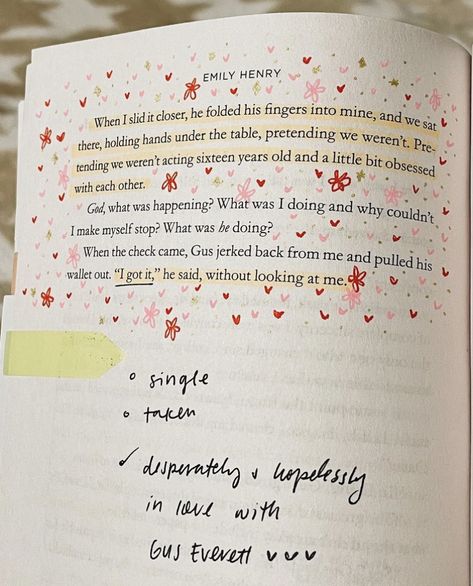 EMILY HENRY
When I slid it closer, he folded his fingers into mine, and we sat
there, holding hands under the table, pretending we weren't. Pre-
tending we weren't acting sixteen years old and a little bit obsessed
with each other.
God, what was happening? What was I doing and why couldn't
I make myself stop? What was he doing?
When the check came, Gus jerked back from me and pulled his
wallet out. "I got it," he said, without looking at me.
single
taken
✓ desperately & hopelessly
in love with
Gus Everett